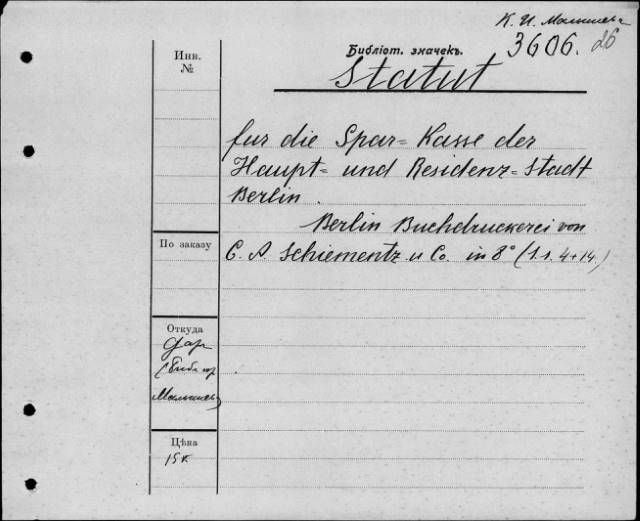 К. И. Малышева
Инв.
№
Библіот. значекъ.
3606. 26
Statut
für die Spar= Kasse der
Haupt= und Residenz=Stadt
Berlin.
Berlin Buchdruckerei von
По заказу
C. A. Schiementz u Co. in 8° (1.1. 4+14.)
Откуда
Дар
Малышев
Цѣна
15 к